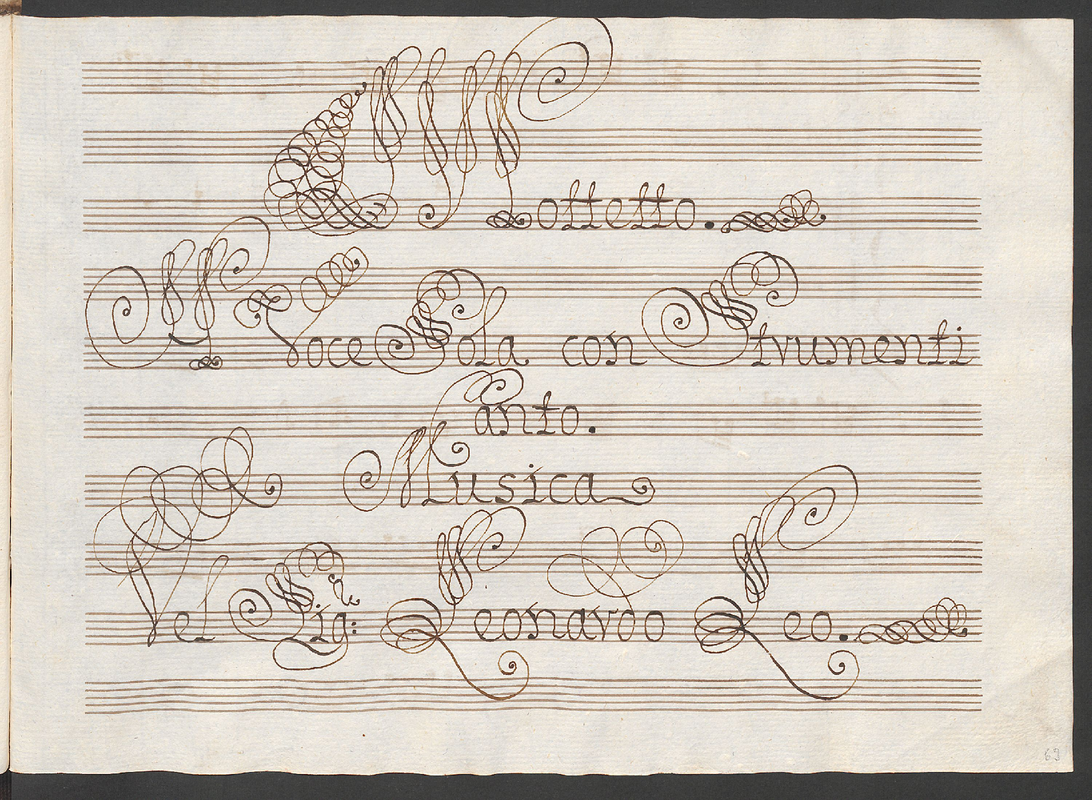 Mottetto.
A Voce Sola con Strumenti
Canto.
Musica
Del Sig:r Leonardo Leo.